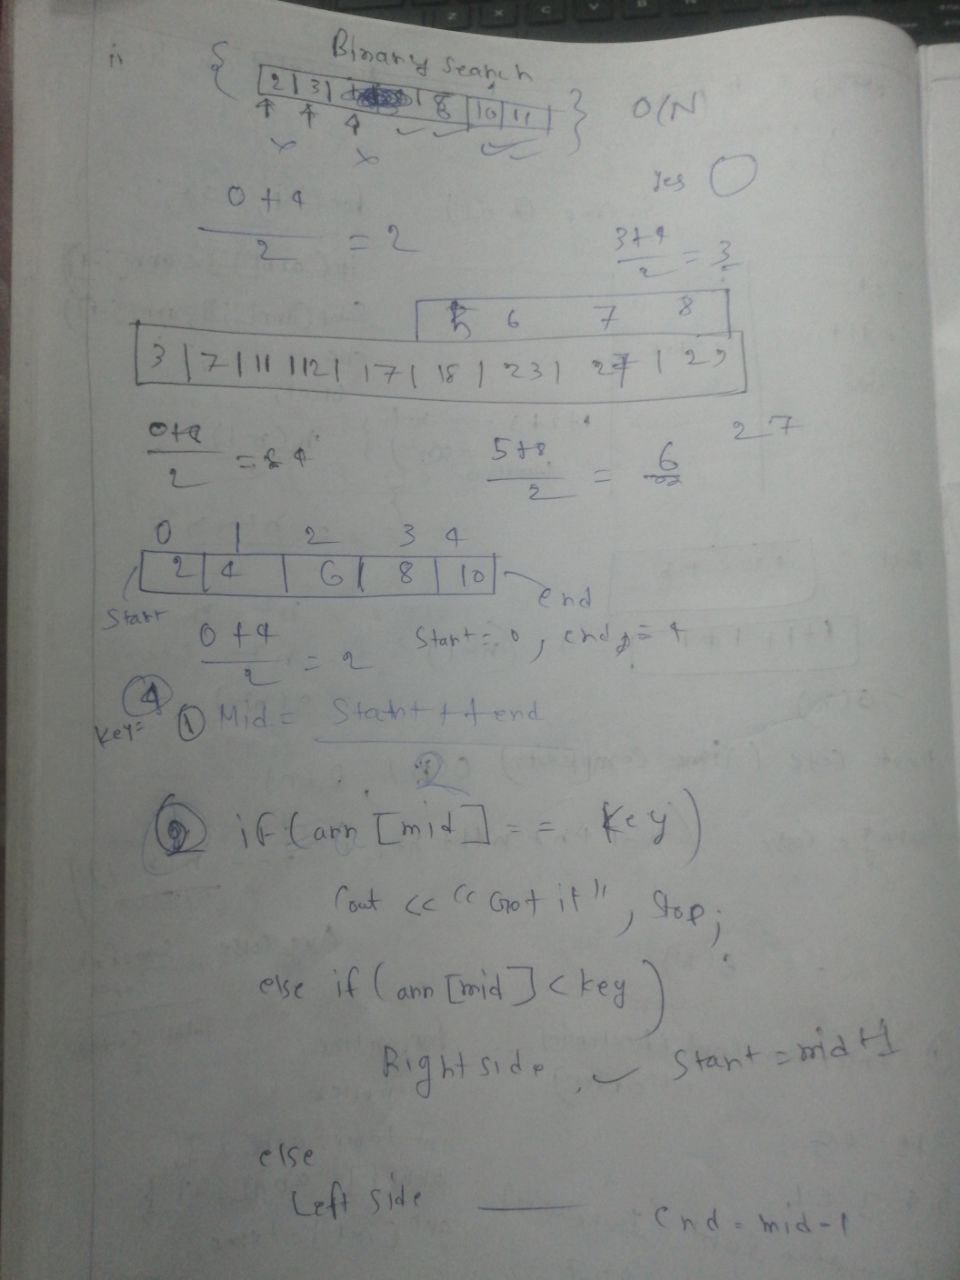 Binary Search
{ 2 | 3 | 8 | 10 | 11 } O(N
Yes
0+4 / 2 = 2
3+4 / 2 = 3
5 6 7 8
3 | 7 | 11 | 12 | 17 | 18 | 23 | 27 | 29
0+8 / 2 = 4
5+8 / 2 = 6
27
0 1 2 3 4
2 | 4 | 6 | 8 | 10
Start end
0+4 / 2 = 2
Start = 0, end = 4
Key= 4
① Mid = Start + end / 2
② if (arr [mid] == Key)
Cout << "Got it", Stop;
else if (arr [mid] < key)
Right side, ✓ Start = mid+1
else
Left side —— end = mid-1